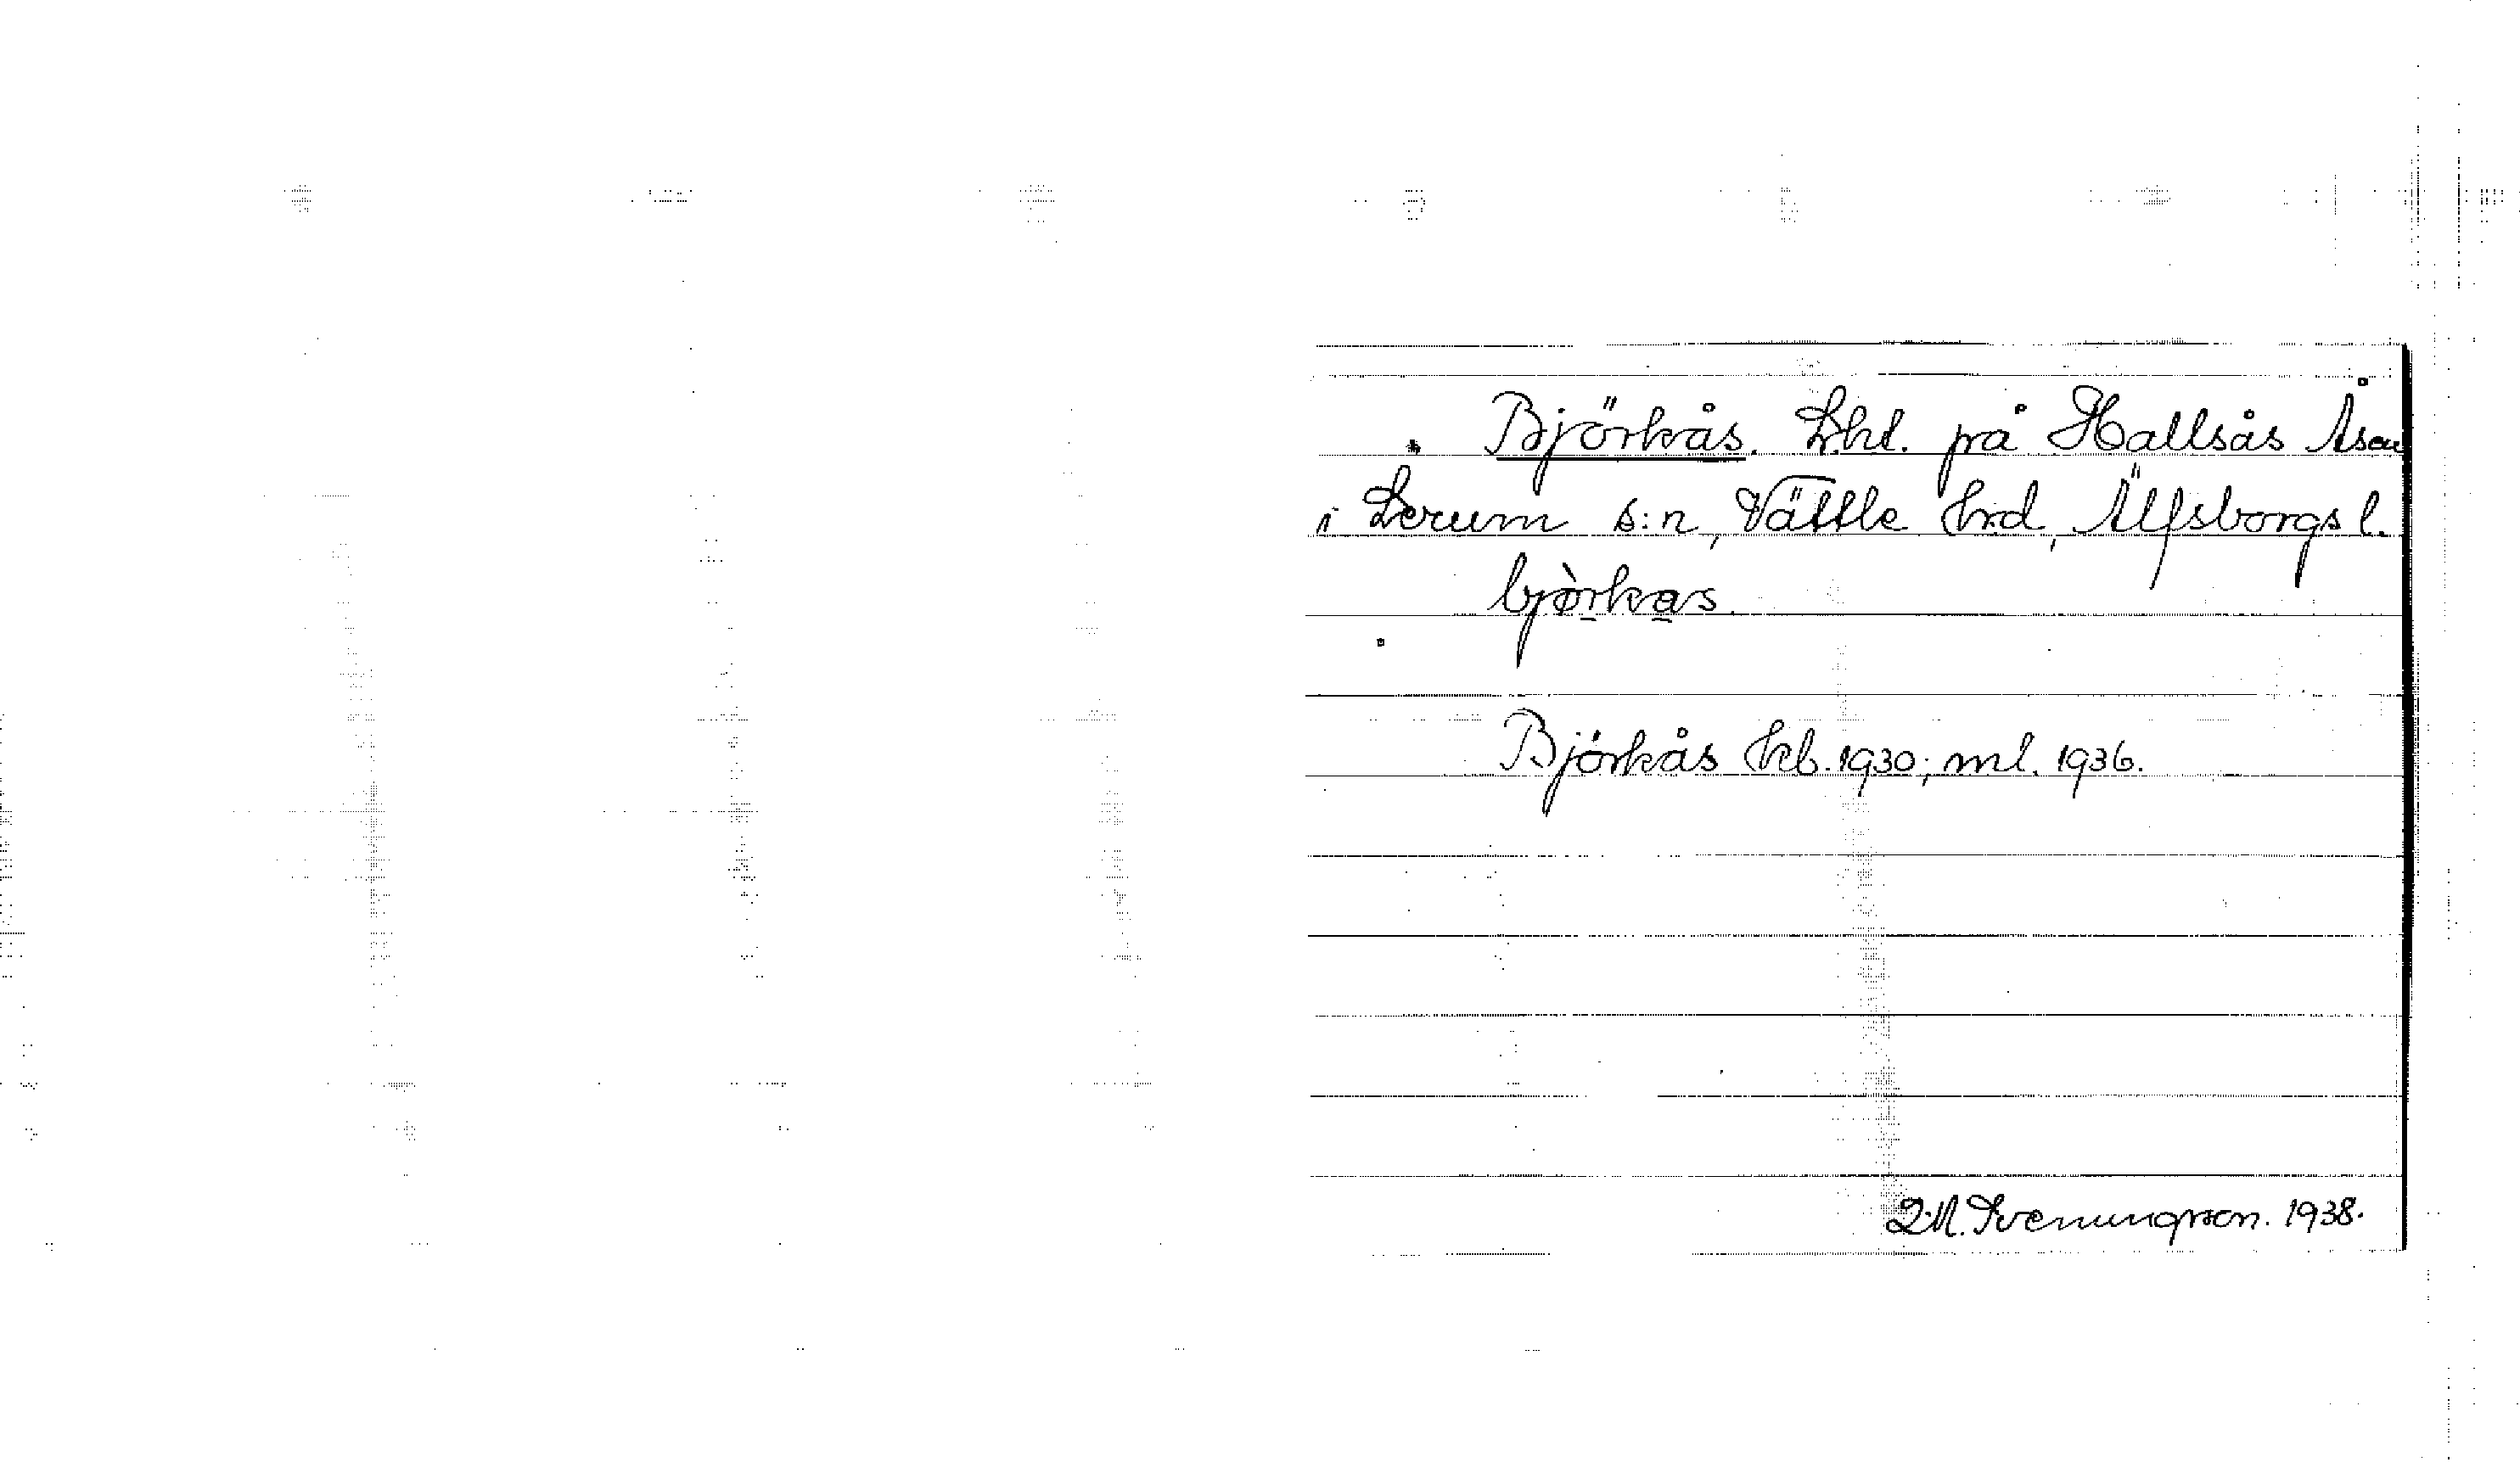 Björkås. Lht. på Hallsås Åsen
i Lerum s:n, Vättle hrd, Älfsborgs l.
bjòrkas.
Björkås kb. 1930; ml. 1936.
Svenungsson. 1938.